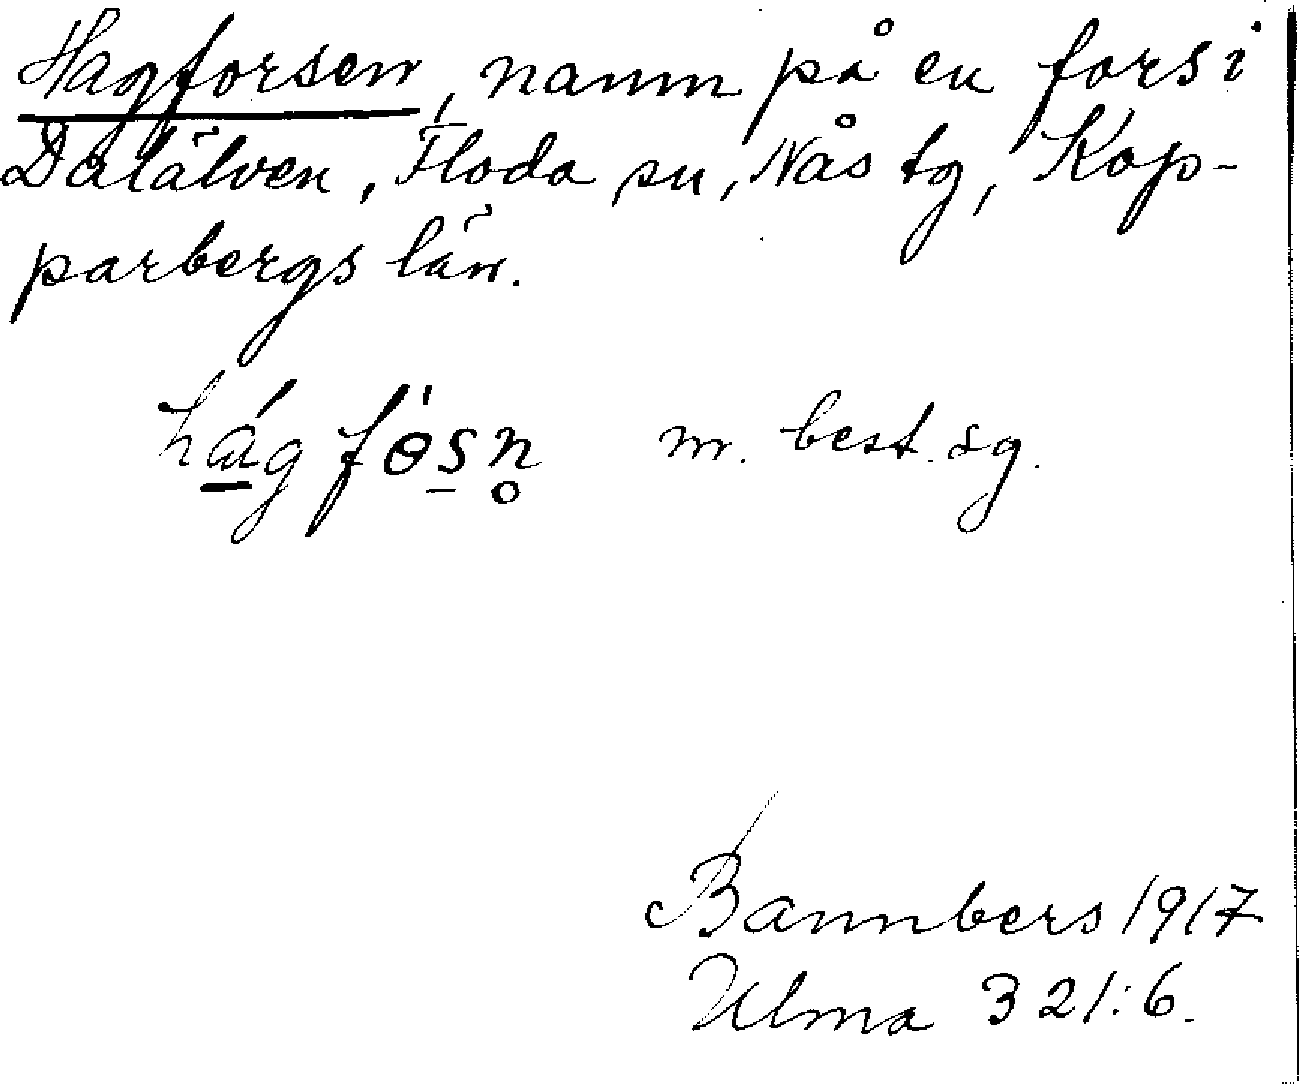 Hagforsen, namn på en fors i
Dalälven, Floda sn, Nås tg, Kop-
parbergs län.
hág fösn̥ m. best. sg.
Bannbers 1917
Ulma 321:6.